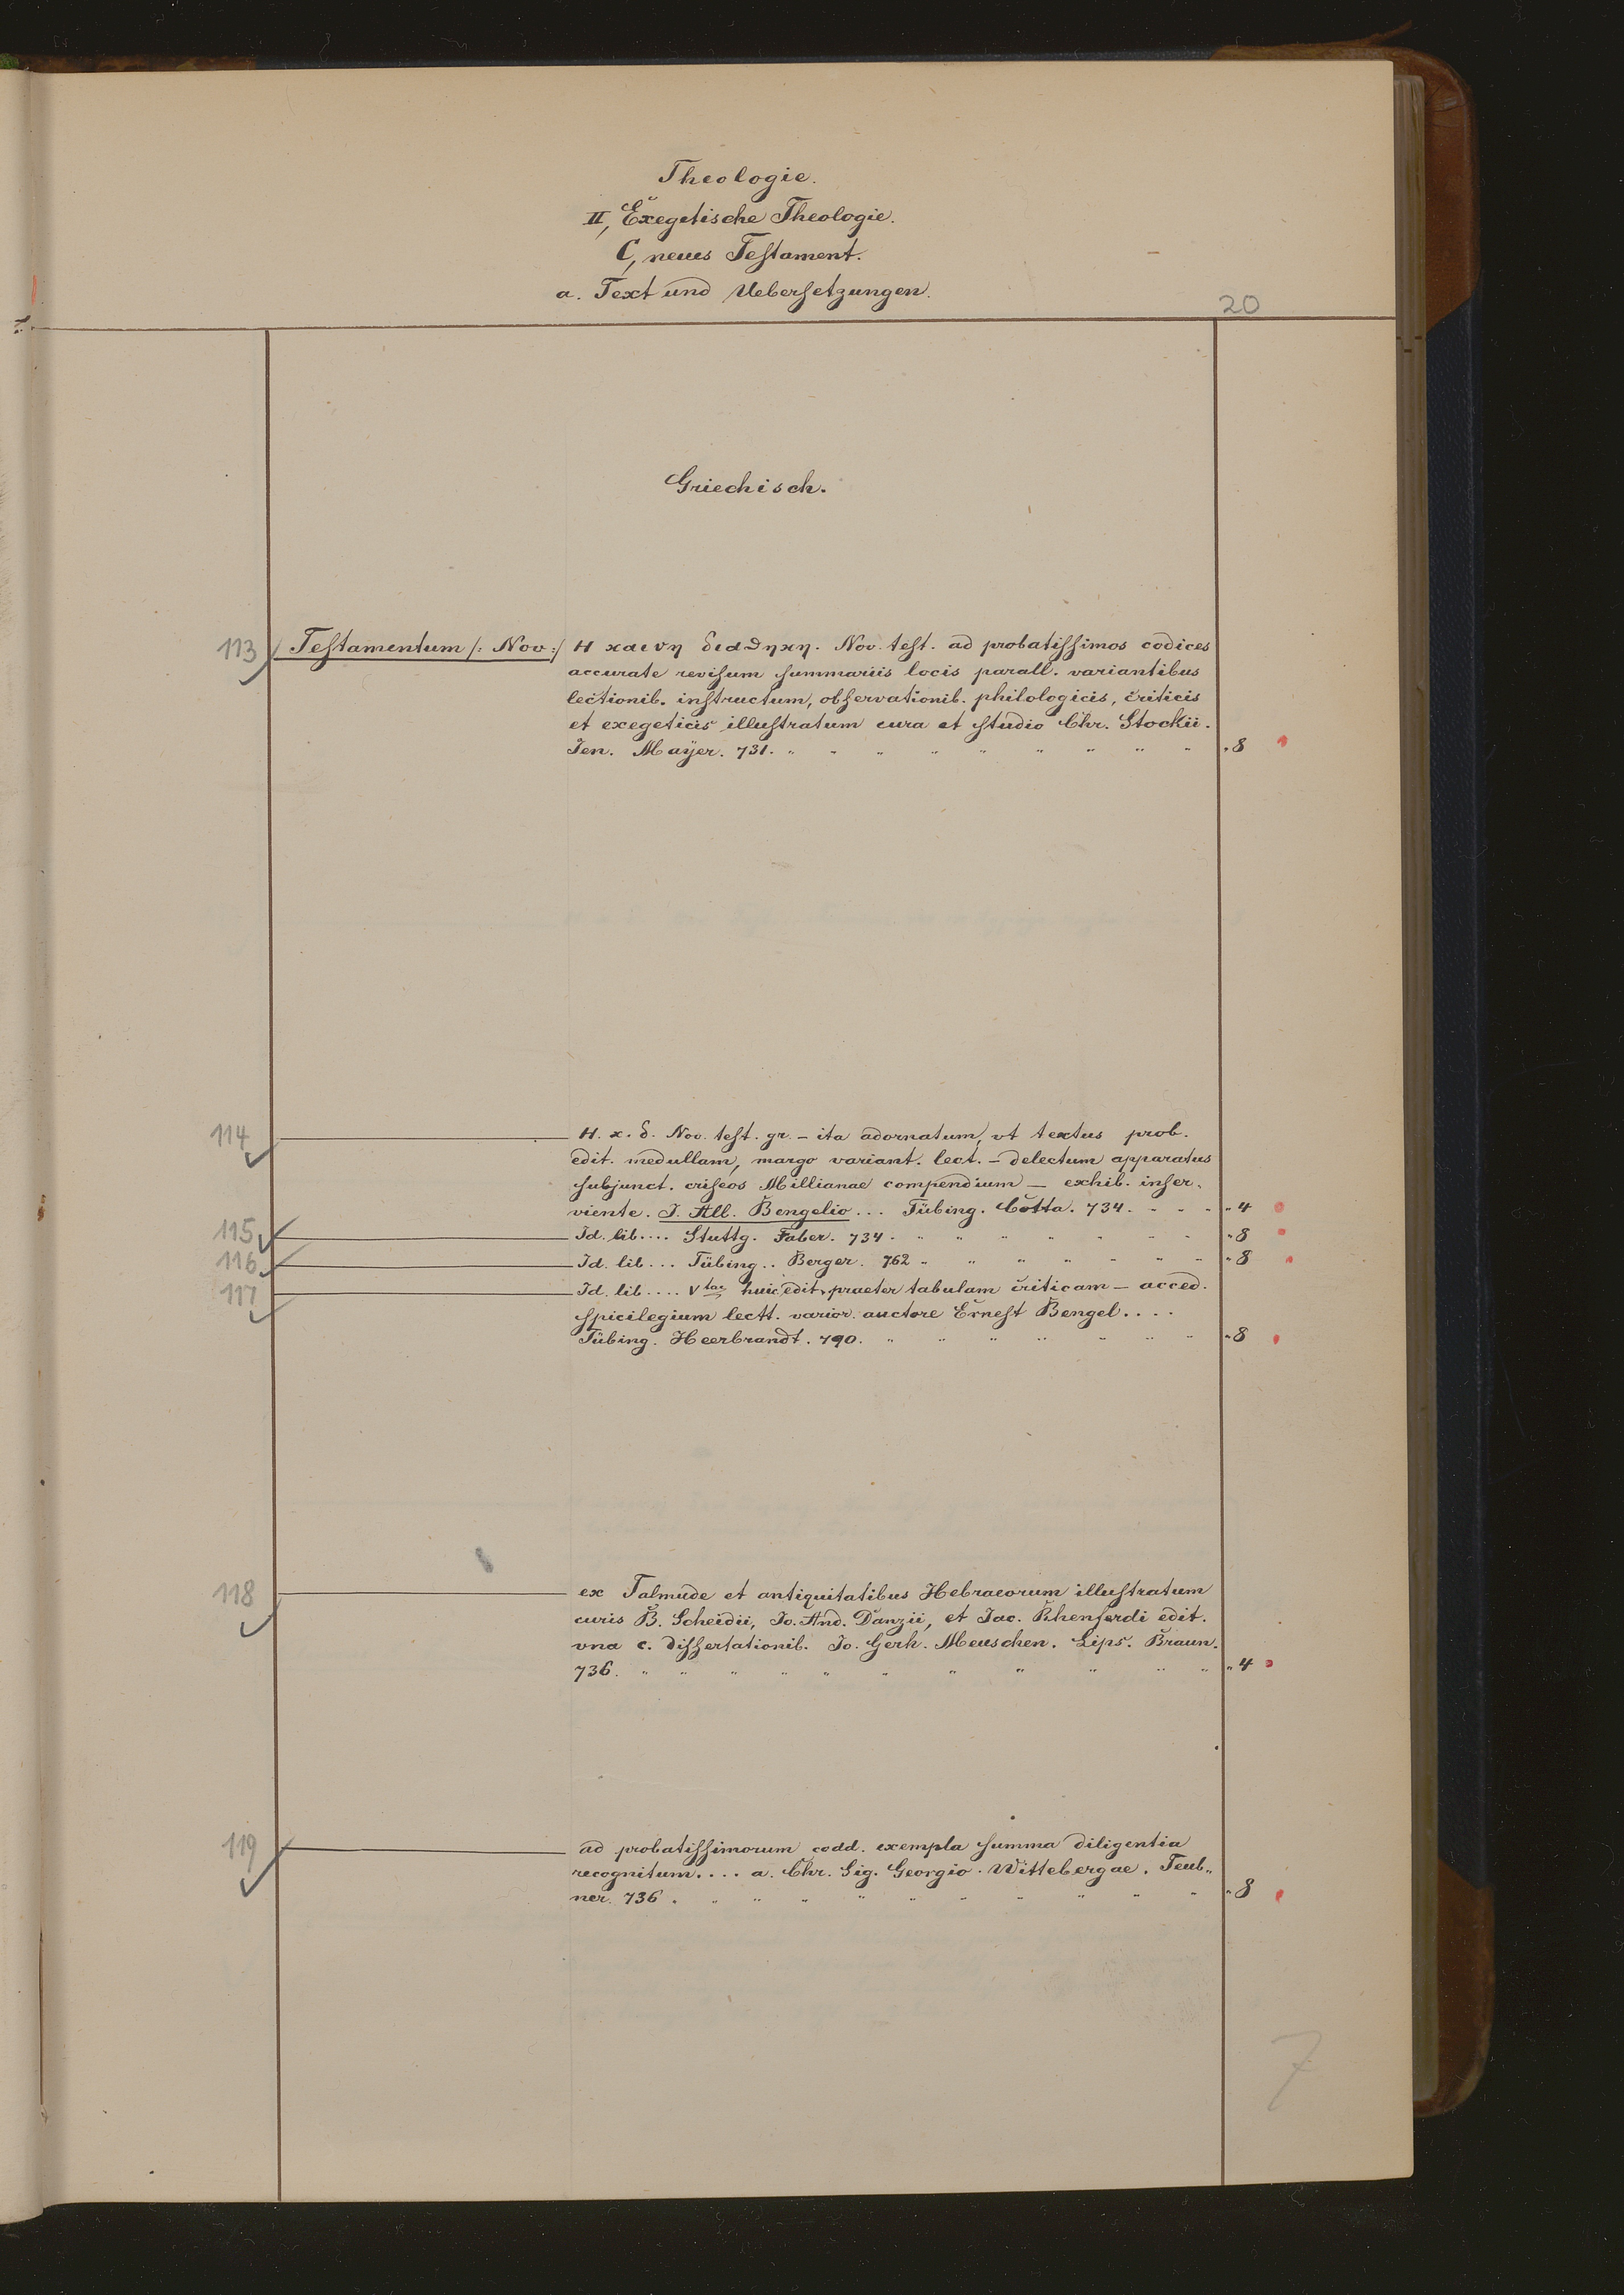 Theologie.
II, Exegetische Theologie.
C, neues Testament.
a. Text und Uebersetzungen.
20
Griechisch.
113 Testamentum /: Nov :/ Η καινη διαθηκη. Nov. test. ad probatissimos codices
accurate revisum summariis locis parall. variantibus
lectionib. instructum, observationib. philologicis, criticis
et exegeticis illustratum cura et studio Chr. Stockii.
Jen. Mayer. 731. " " " " " " " " " " 8
114 Η. κ. δ. Nov. test. gr. – ita adornatum, vt textus prob.
edit. medullam, margo variant. lect. – delectum apparatus
subjunct. criseos Millianae compendium – exhib. inser-
viente. J. Alb. Bengelio... Tübing. Cotta. 734. - - - " 4
115 Id. lib.... Stuttg. Faber. 734. " " " " " " " " 8
116 Id. lib... Tübing.. Berger. 762 " " " " " " " " 8
117 Id. lib.... Vtae huic edit. praeter tabulam criticam – acced.
spicilegium lectt. varior. auctore Ernest Bengel....
Tübing. Heerbrandt. 790. " " " " " " " " 8
118 ex Talmude et antiquitatibus Hebraeorum illustratum
curis B. Scheidii, Jo. And. Danzii, et Jac. Rhenferdi edit.
vna c. dissertationib. Jo. Gerh. Meuschen. Lips. Braun.
736. " " " " " " " " " " " " 4
119 ad probatissimorum codd. exempla summa diligentia
recognitum.... a. Chr. Sig. Georgio. Wittebergae. Teub-
ner. 736. " " " " " " " " " " " 8
7